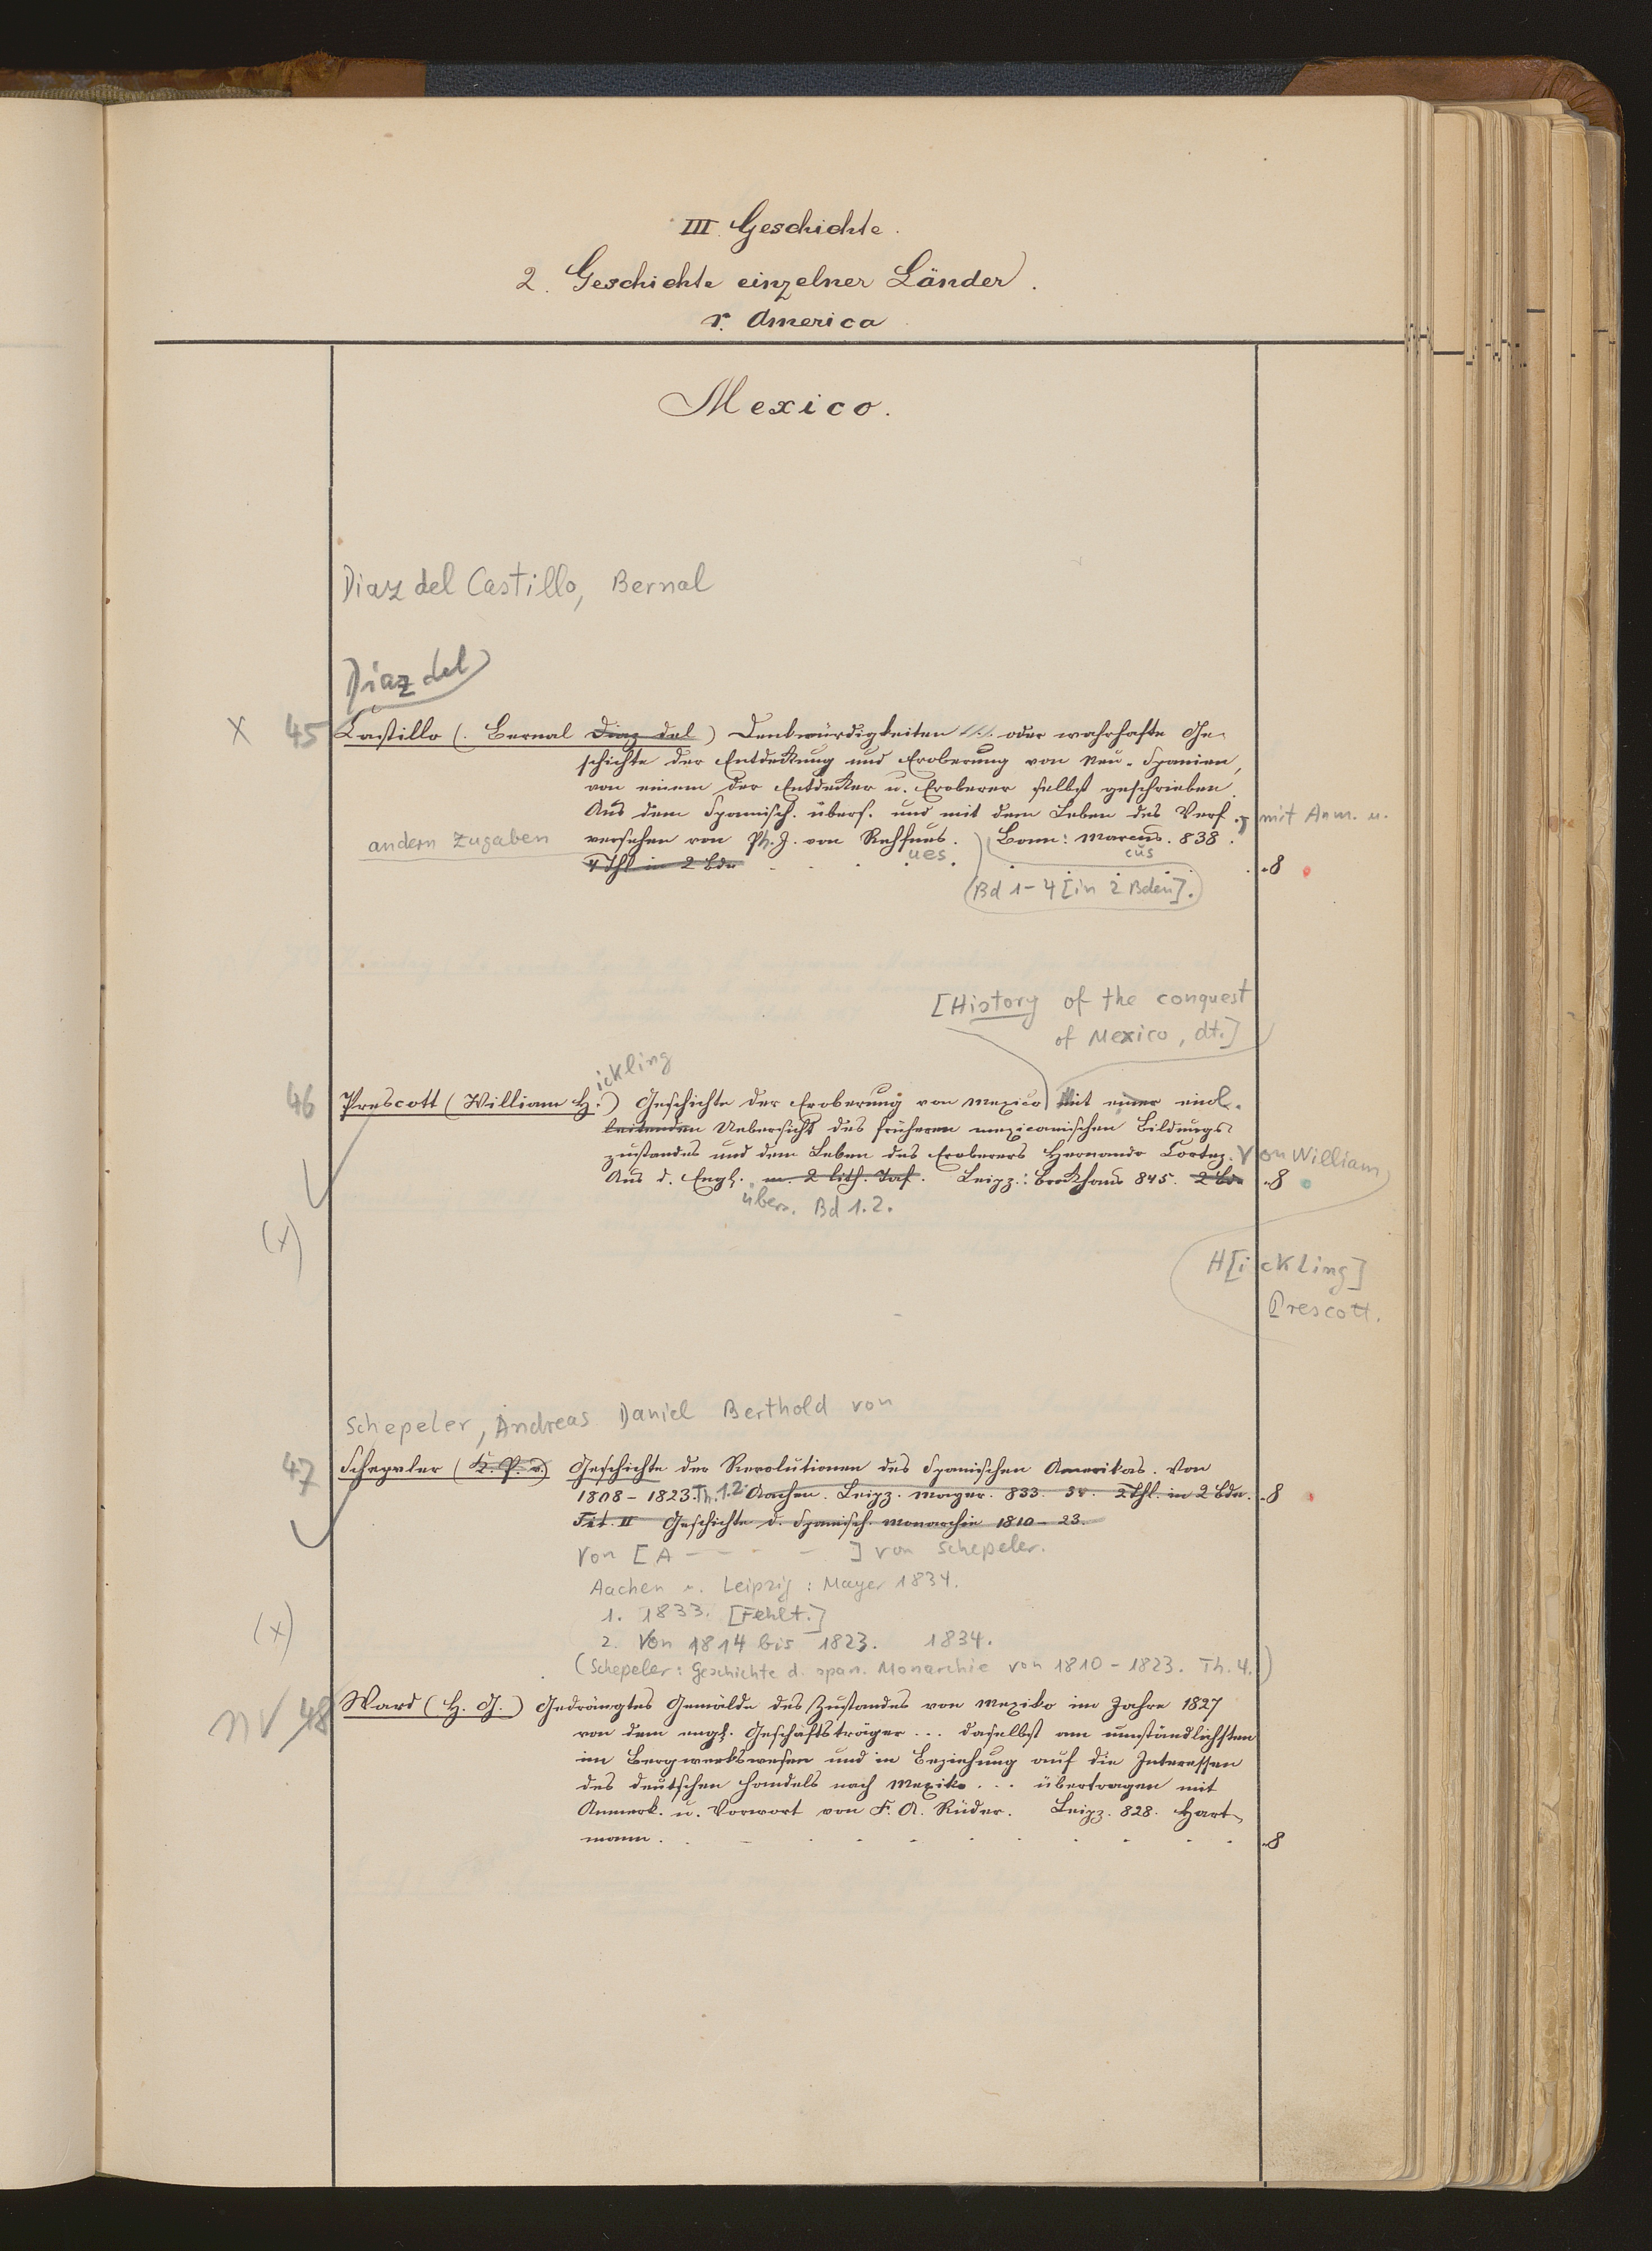 III. Geschichte.
2. Geschichte einzelner Länder.
r. America
Mexico.
Diaz del Castillo, Bernal
Diaz del
X 45 Castillo (. Bernal Diaz del) Denkwürdigkeiten oder wahrhafte Ge-
schichte der Entdekung und Eroberung von Neu-Spanien,
von einem der Entdeker u. Eroberer selbst geschrieben.
Aus dem Spanisch. übers. und mit dem Leben des Verf. mit Anm. u.
andern Zugaben versehen von Ph. J. von Rehfues. Bonn: Marcus. 838.
ues cus
4 Thl in 2 Bde 8
(Bd 1-4 [in 2 Bden].
[History of the conquest
of Mexico, dt.]
ickling
46 Prescott (William H.) Geschichte der Eroberung von Mexico Mit einer einl-
leitenden Uebersicht des früheren mexicanischen Bildungs-
zustandes und dem Leben des Eroberers Hernando Cortez. Von William
Aus d. Engl. m. 2 lith. Taf. Leipz.: Brokhaus 845. 2 Bde 8
übers. Bd 1.2.
(x)
H[ickling]
Prescott.
Schepeler, Andreas Daniel Berthold von
47 Schepeler (K. P. v.) Geschichte der Revolutionen des Spanischen Amerikas. Von
1808-1823. Th. 1.2. Aachen. Leipz. Mayer. 833. 34. 2 Thl. in 2 Bde. 8
Tit. II Geschichte d. Spanisch. Monarchie 1810-23.
Von [A - - - -] von Schepeler.
Aachen u. Leipzig: Mayer 1834.
1. 1833. [Fehlt.]
(x)
2. Von 1814 bis 1823. 1834.
(Schepeler: Geschichte d. span. Monarchie von 1810-1823. Th. 4.)
NV 48 Ward (H. G.) Gedrängtes Gemälde des Zustandes von Mexiko im Jahre 1827
von dem engl. Geschäftsträger ... daselbst am umständlichsten
im Bergwerkswesen und in Beziehung auf die Interessen
des deutschen Handels nach Mexiko ... übertragen mit
Anmerk. u. Vorwort von F. A. Rüder. Leipz. 828. Hart-
mann. 8